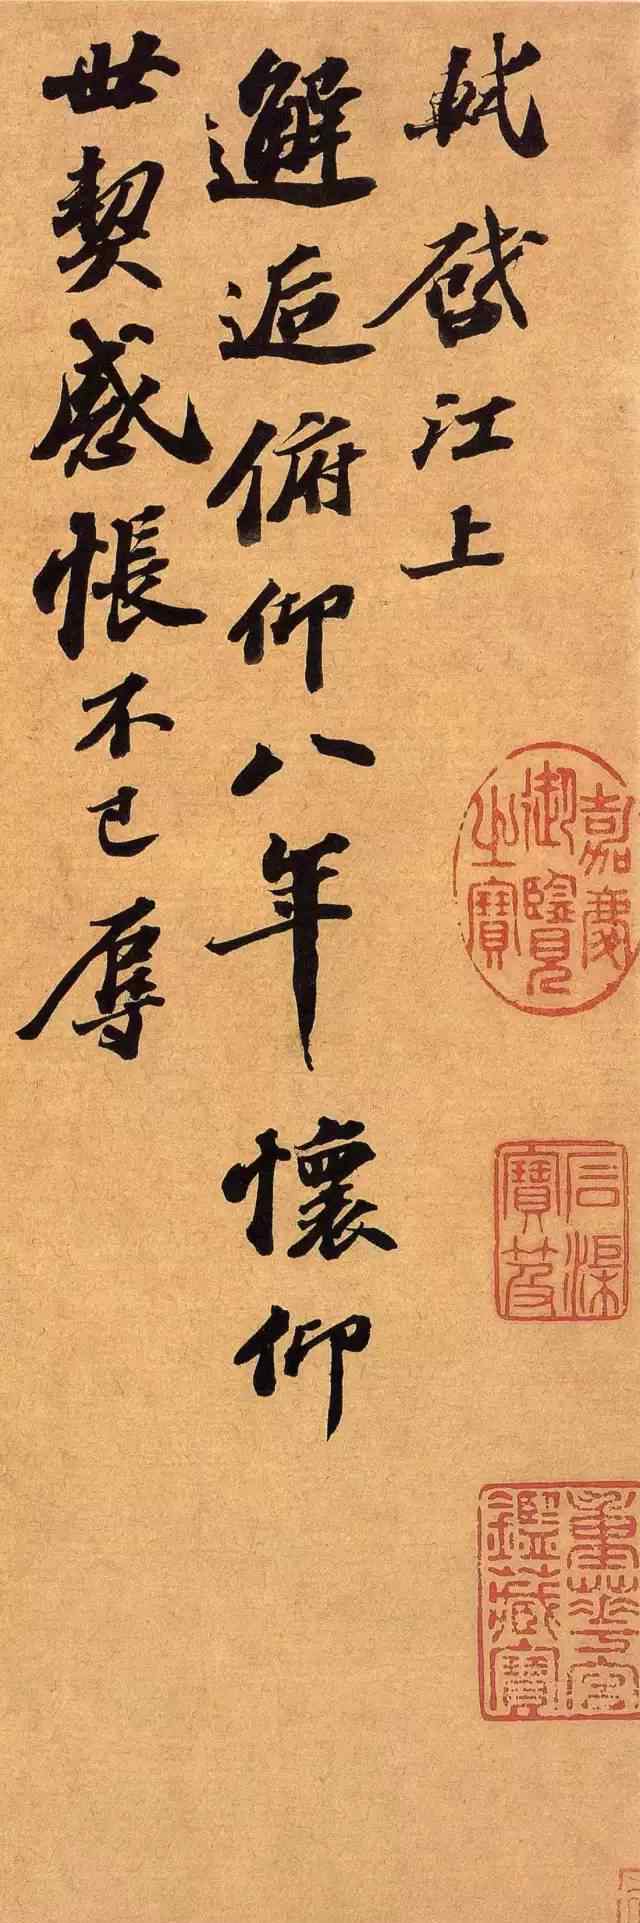 軾啓江上
邂逅俯仰八年懷仰
世契感悵不已辱
嘉慶
御覽
之寶
石渠
寶笈
鑑藏寶